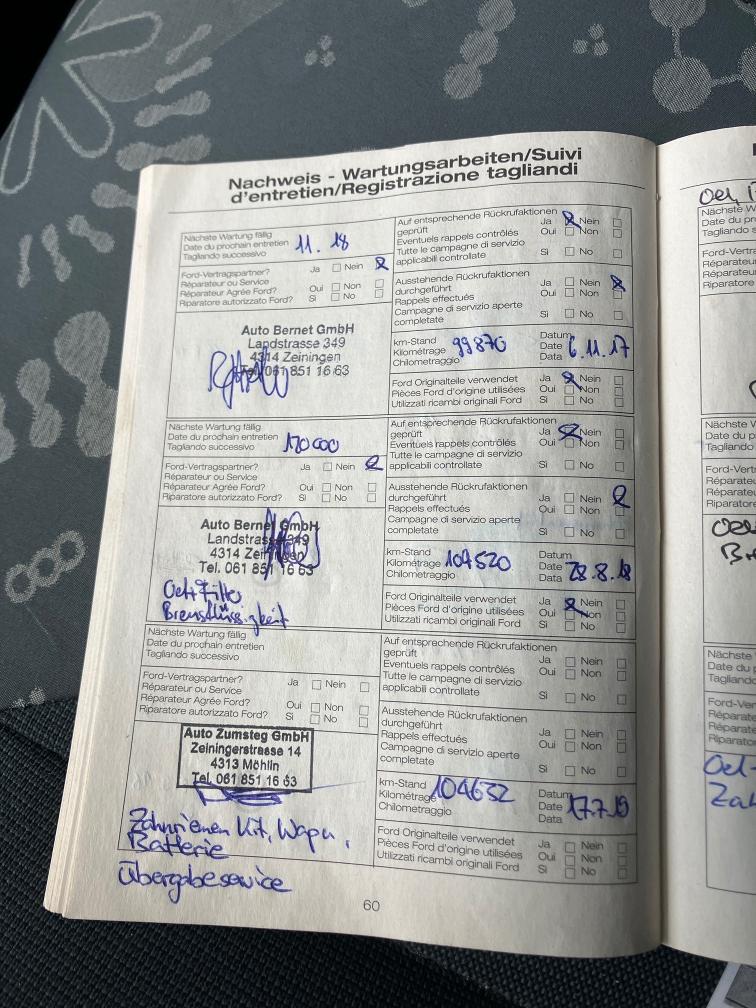 Nachweis - Wartungsarbeiten/Suivi
d'entretien/Registrazione tagliandi
Nächste Wartung fällig
Date du prochain entretien
Tagliando successivo
11. 18
Ford-Vertragspartner?
Réparateur ou Service
Réparateur Agrée Ford?
Riparatore autorizzato Ford?
Ja Nein
Oui Non
Si No
Auto Bernet GmbH
Landstrasse 349
4314 Zeiningen
Tel. 061 851 16 63
Auf entsprechende Rückrufaktionen
geprüft
Eventuels rappels contrôlés
Tutte le campagne di servizio
applicabili controllate
Ja Nein
Oui Non
Si No
Ausstehende Rückrufaktionen
durchgeführt
Rappels effectués
Campagne di servizio aperte
completate
Ja Nein
Oui Non
Si No
km-Stand
Kilométrage
Chilometraggio
99876
Datum
Date
Data
6.11.17
Ford Originalteile verwendet
Pièces Ford d'origine utilisées
Utilizzati ricambi originali Ford
Ja Nein
Oui Non
Si No
Nächste Wartung fällig
Date du prochain entretien
Tagliando successivo
120000
Ford-Vertragspartner?
Réparateur ou Service
Réparateur Agrée Ford?
Riparatore autorizzato Ford?
Ja Nein
Oui Non
Si No
Auto Bernet GmbH
Landstrasse 349
4314 Zeiningen
Tel. 061 851 16 63
Oel+Filter
Bremsflüssigkeit
Auf entsprechende Rückrufaktionen
geprüft
Eventuels rappels contrôlés
Tutte le campagne di servizio
applicabili controllate
Ja Nein
Oui Non
Si No
Ausstehende Rückrufaktionen
durchgeführt
Rappels effectués
Campagne di servizio aperte
completate
Ja Nein
Oui Non
Si No
km-Stand
Kilométrage
Chilometraggio
104520
Datum
Date
Data
28.8.18
Ford Originalteile verwendet
Pièces Ford d'origine utilisées
Utilizzati ricambi originali Ford
Ja Nein
Oui Non
Si No
Nächste Wartung fällig
Date du prochain entretien
Tagliando successivo
Ford-Vertragspartner?
Réparateur ou Service
Réparateur Agrée Ford?
Riparatore autorizzato Ford?
Ja Nein
Oui Non
Si No
Auto Zumsteg GmbH
Zeiningerstrasse 14
4313 Möhlin
Tel. 061 851 16 63
Zahnriemen Kit, Wapu,
Batterie
Übergabeservice
Auf entsprechende Rückrufaktionen
geprüft
Eventuels rappels contrôlés
Tutte le campagne di servizio
applicabili controllate
Ja Nein
Oui Non
Si No
Ausstehende Rückrufaktionen
durchgeführt
Rappels effectués
Campagne di servizio aperte
completate
Ja Nein
Oui Non
Si No
km-Stand
Kilométrage
Chilometraggio
104632
Datum
Date
Data
17.7.19
Ford Originalteile verwendet
Pièces Ford d'origine utilisées
Utilizzati ricambi originali Ford
Ja Nein
Oui Non
Si No
60
Oel,
Date du
Tagliando
Réparateur
Réparateur
Riparatore
Nächste
Date du
Tagliando
Réparateur
Réparateur
Riparatore
Nächste
Date du
Tagliando
Réparateur
Réparateur
Oel-